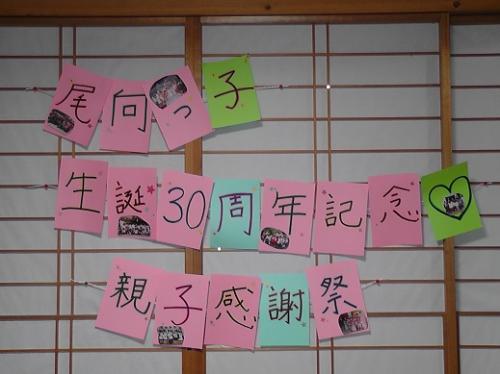 尾向っ子
生誕30周年記念
親子感謝祭